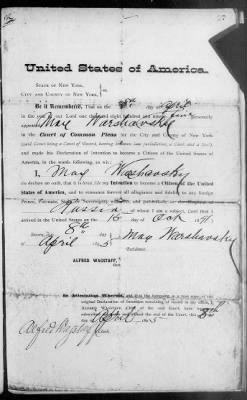 United States of America.
STATE OF NEW YORK,
CITY AND COUNTY OF NEW YORK,
Be it Remembered, That on the 8th day April
in the year of our Lord one thousand eight hundred and ninety
appeared Max Warshavsky
in the Court of Common Pleas for the City and County of New York
(said Court being a Court of Record, having common law jurisdiction, a Clerk and a Seal)
and made his Declaration of Intention to become a Citizen of the United States of
America, in the words following, to wit:
I, Max Warshavsky
do declare on oath, that it is bona fide my Intention to become a Citizen of the United
States of America, and to renounce forever all allegiance and fidelity to any
Foreign Prince, Potentate, State or Sovereignty
Russia of whom I am a subject, (and that I
arrived in the United States on the 16 Oct
Sworn, 8th
April Max Warshavsky
ALFRED WAGSTAFF,
Clerk.
In Attestation Whereof, and that the foregoing is a true copy of the
original Declaration of Intention remaining of record in my office, I,
ALFRED WAGSTAFF, Clerk of the said Court, have
subscribed my name and affixed the seal of the Court, this 8th
day April
Alfred Wagstaff Clerk